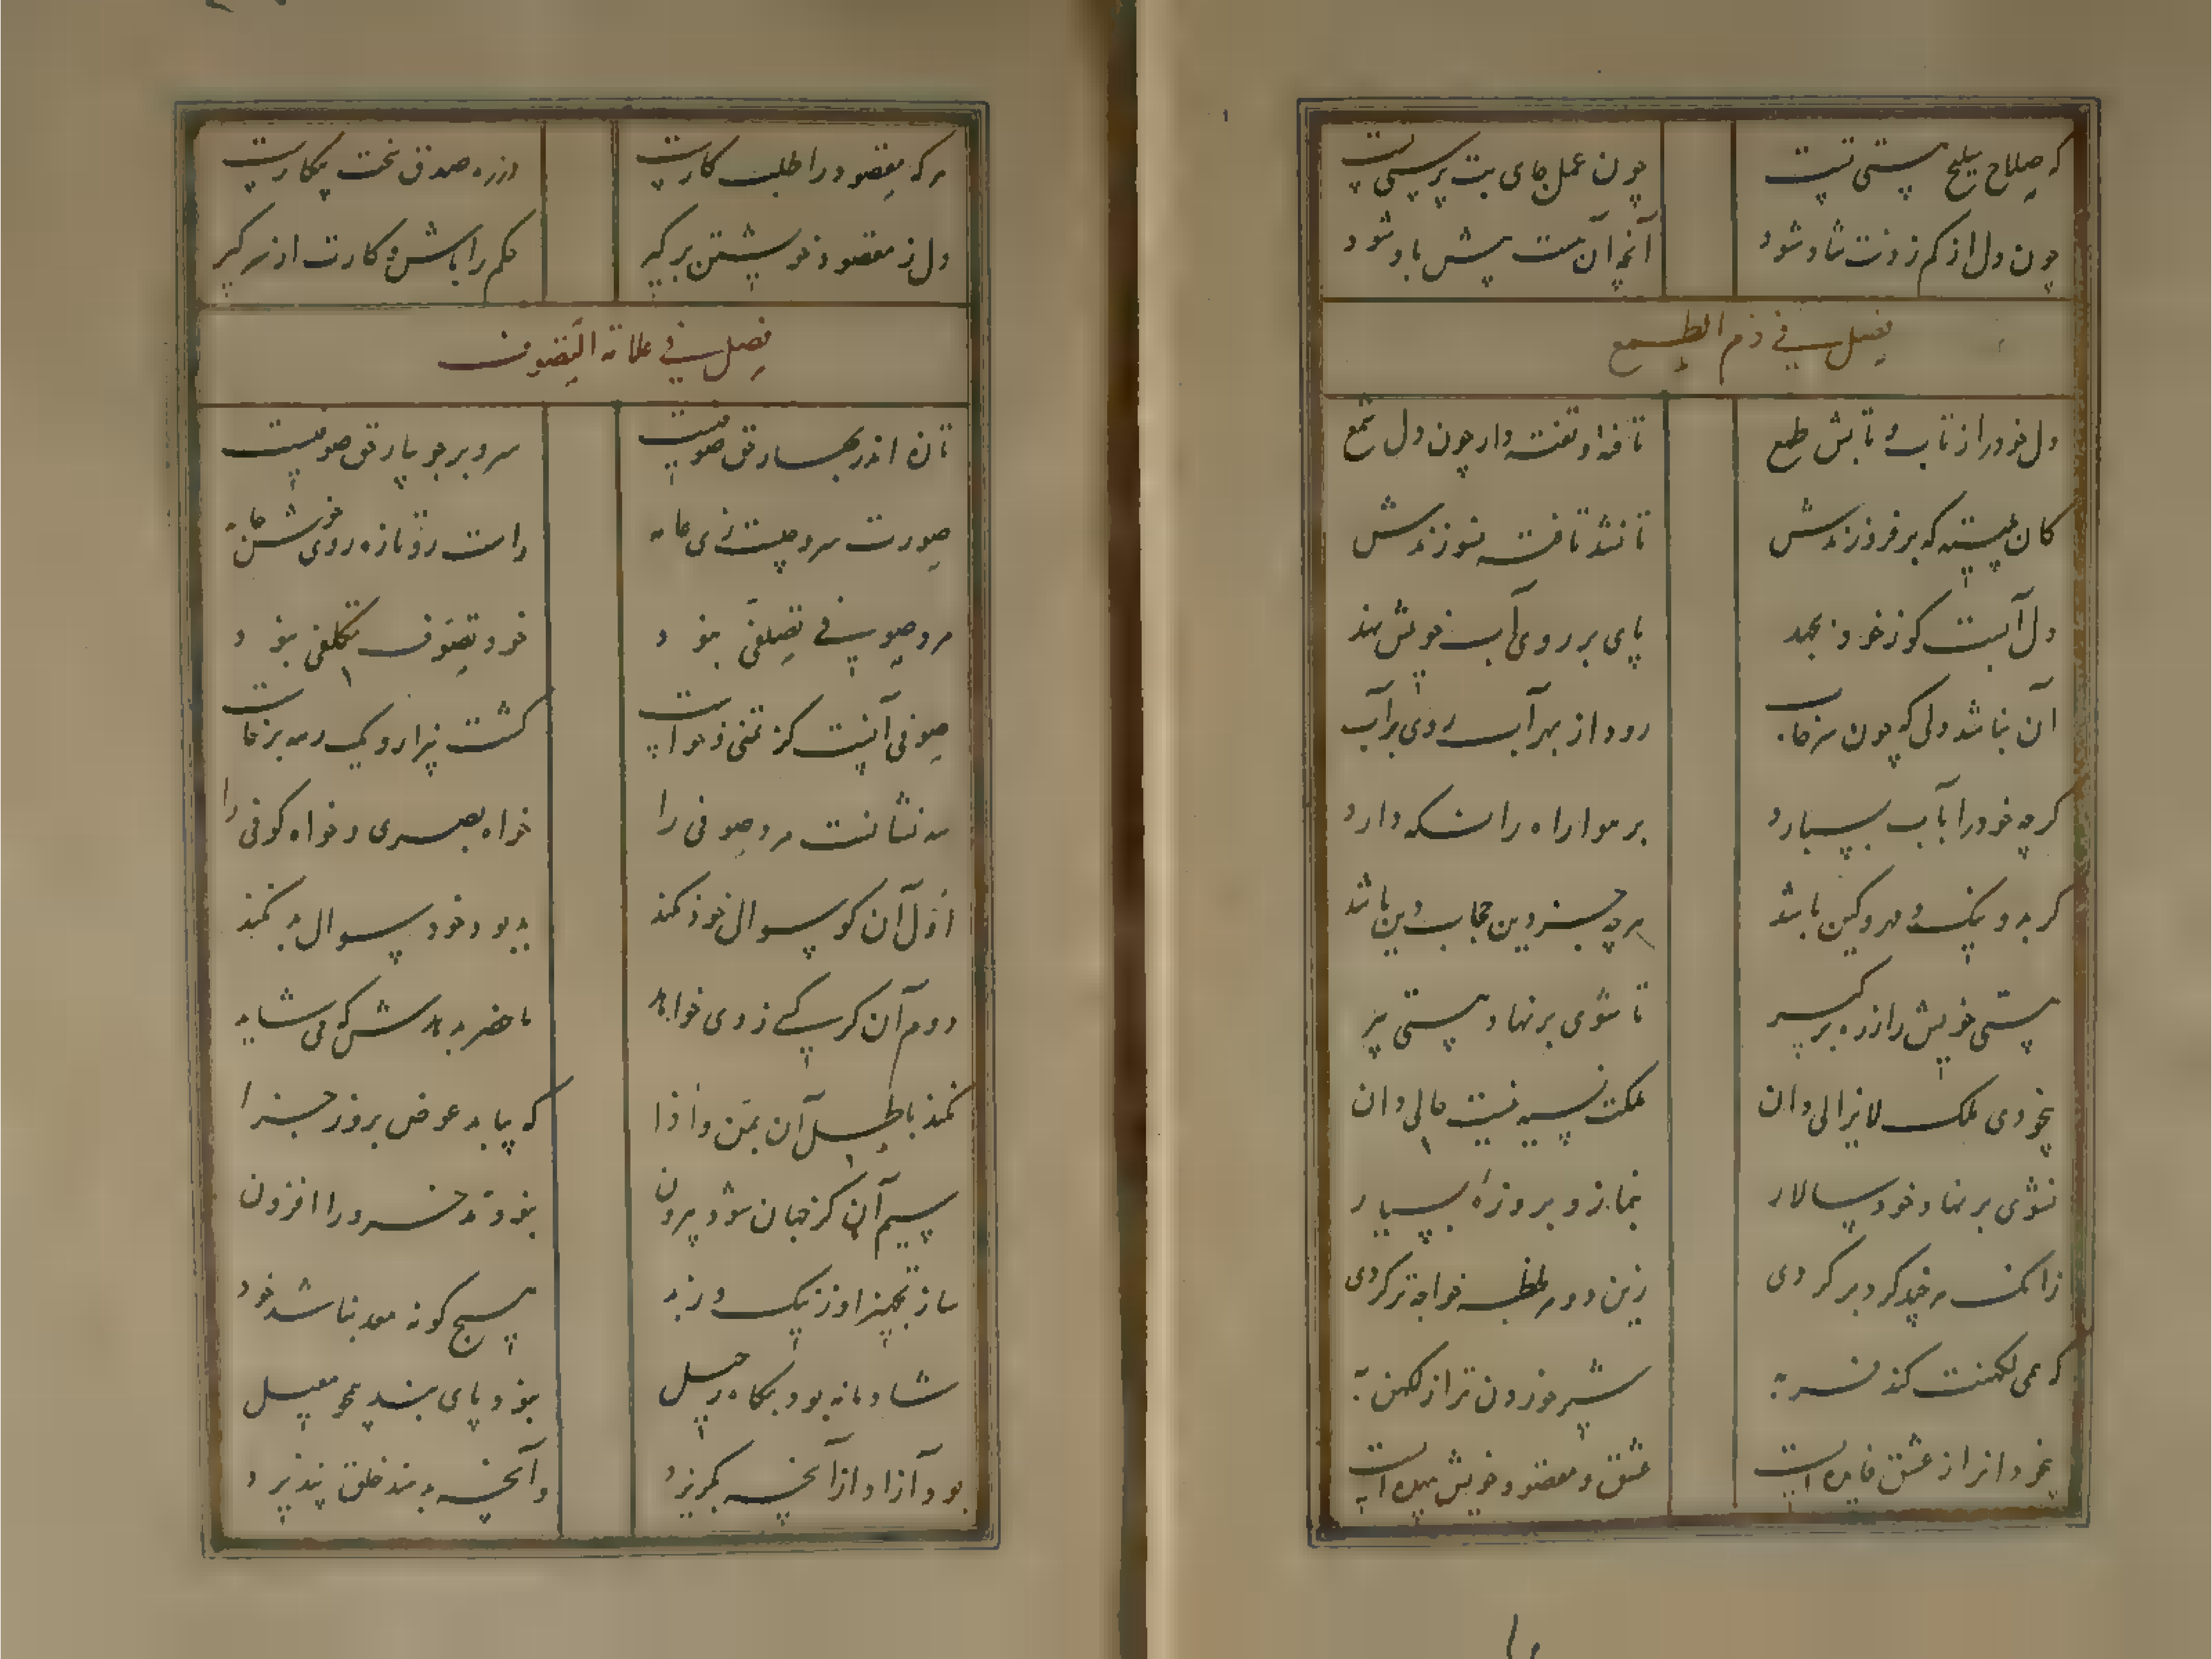 که صلاح سلح هستی تست چون عمل جای بت پرستی تست
چون دل از کم زدنت شاد شود آنچه آن هست پیش باد شود
فصل فی ذم الطمع
دل خود را ز تاب و تابش طمع تافته و تفته دار چون دل شمع
کان نبینی که بر فروزندش تا نشد تافته نسوزندش
دل آنست کو ز خود بجهد پای بر روی آب خویش نهد
آن نباشد دلی که چون سرخاب رود از بهر آب روی بر آب
گرچه خود را بآب بسپارد بر هوا راه را نگه دارد
گر بد و نیک و مهر و کین باشد هرچه جز دین حجاب دین باشد
هستی خویش را ز ره برگیر تا شوی بر نهاد هستی میر
بیخودی ملک لایزالی دان ملکت نسیه نیست حالی دان
نشوی بر نهاد خود سالار بنماز و بروزهٔ بسیار
زانکه هرچند گرد برگردی زین دو هر لحظه خواجه تر گردی
که همی لکهنت کند فربه سیر خوردن ترا ز لکهن به
بخرد را ز عشق فایده است عشق و مقصود خویش بیهده است
هرکه مقصود را طلب کارست در ره صدق سخت بیکارست
دل ز مقصود خویشتن برگیر حکم را باش و کارت از سر گیر
فصل فی علامة التصوف
تازه اندر بهار حق صوفیست سرو بر جویبار حق صوفیست
صورت سرو چیست زی عامه راست رو تازه روی خوش جامه
مرد صوفی تصلفی نبود خود تصوف تکلفی نبود
صوفی آنست کز تمنی و خواست گشت بیزار و یکرمه برخاست
سه نشانست مرد صوفی را خواه بصری و خواه کوفی را
اول آن کو سوال خود نکند بد بود خود سوال بد نکند
دوم آن گر کسی ز وی خواهد ماحضر بدهدش که می شاید
نکند باطل آن بمن و اذا که بیابد عوض بروز جزا
سیم آن کز جهان شود بیرون نبود مدخر ورا افزون
ساز تجهیز او ز نیک و ز بد هیچ گونه معد نباشد خود
شادمانه بود بگاه رحیل نبود پای بند همچو معیل
بود آزاد از آنچه بگریزد وانچه بدهند خلق نپذیرد